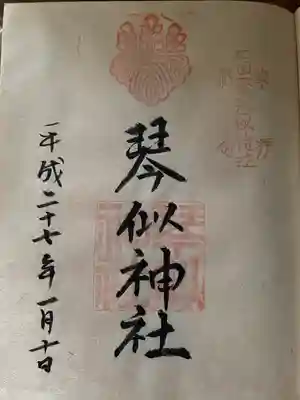 琴似神社
平成二十七年一月十日